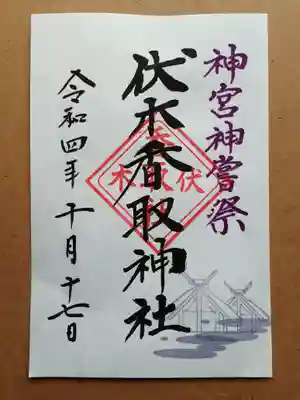 神宮神嘗祭
伏木香取神社
令和四年十月十七日